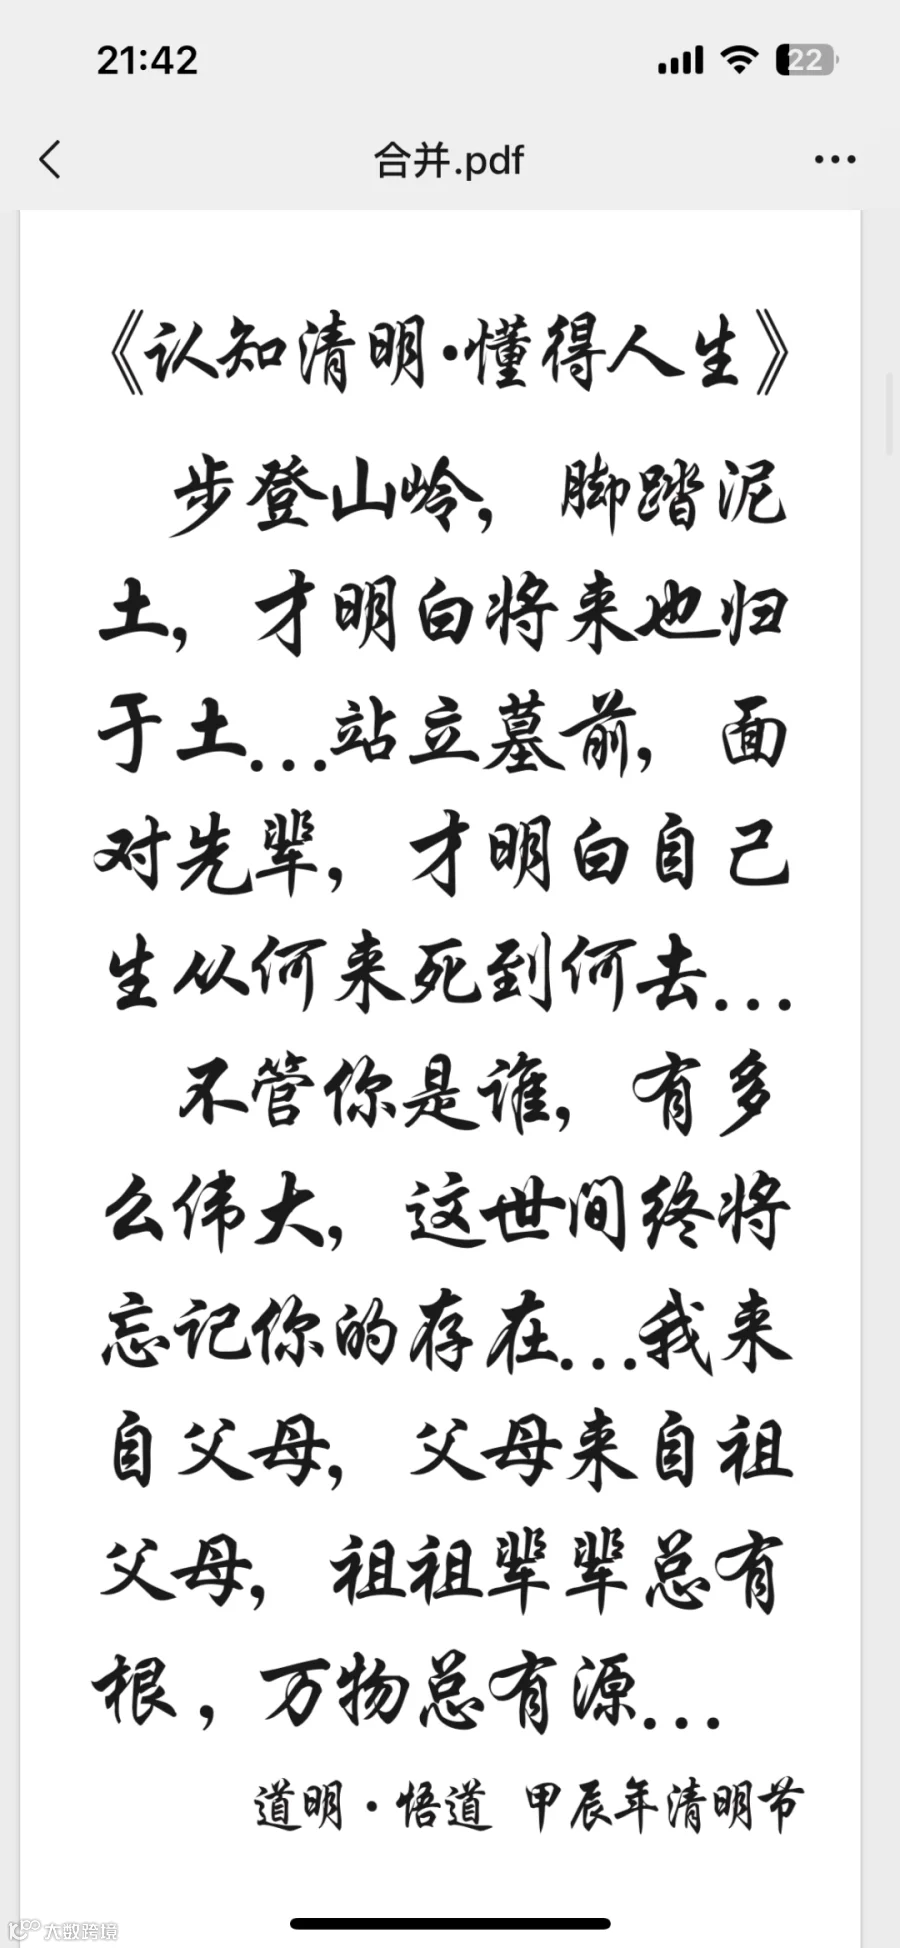 21:42
22
合并.pdf
《认知清明·懂得人生》
步登山岭，脚踏泥
土，才明白将来也归
于土...站立墓前，面
对先辈，才明白自己
生从何来死到何去...
不管你是谁，有多
么伟大，这世间终将
忘记你的存在...我来
自父母，父母来自祖
父母，祖祖辈辈总有
根，万物总有源...
道明·悟道 甲辰年清明节
大数跨境